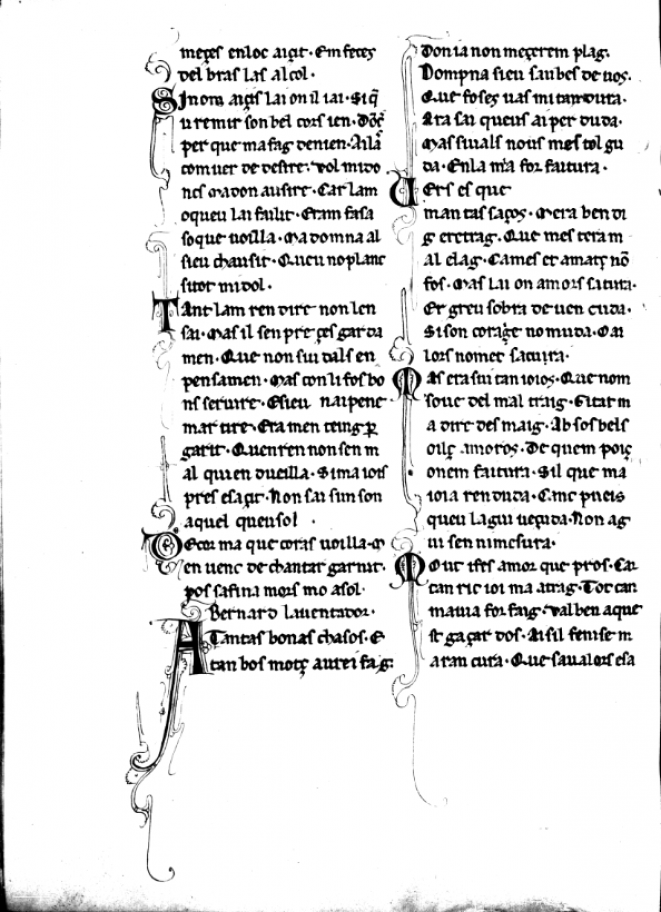 meçes enloc aiçit · Em feceç
del bras las alcol ·
Sinom aiçis lai on il iai · Si q̃
u remir son bel cors ien · Dõç
per que ma fag de nien · A ila
comuer de destre · vol mi do
nes ma don ausire · Car lam
oqueu lai failit · Eram fasa
so que uoilla · Ma domna al
sieu chausit · Queu no planc
sitot mi dol ·
Tant lam ren dire non len
sai · Mas il sen pre çes garda
men · Que non sui dals en
pensamen · Mas con li fos bo
ns seruire · Esieu naipene
mar tire · Era men teing p̲
garit · Quen ren non sen m
al qui en dueilla · Sima iois
pres esaçit · Non sai sun son
aquel queu sol ·
De cor ma que coras uoilla · M
en uenc de chantar garnit ·
pos sa fina mors mo asol ·
Bernard Liuentador ·
A Tantas bonas chasos · E
tan bos motç aurei fag
Don ia non meçerem plag ·
Dompna sieu saubes de uos ·
Que foses uas mi tan dura ·
Ara sai queus ai per duda ·
Mas siuals nous mes tol gu
da · En la mia for faitura ·
Uers es que
man tas saços · Mera ben di
g e retrag · Que mes tera m
al e lag · Cames et amatç nõ
fos · Mas lai on amors satura ·
Er greu sobra de uen cuda ·
Si son coraçe no muda · Oai
lors nomer satuira ·
Mas era sui tan ioios · Que nom
soue del mal traig · Gitat m
a dire des maig · Ab sos bels
oilç amoros · De quem pois
onem faitura · Sil que ma
ioia ren duda · Canc pueis
queu lagui ueçuda · Non ag
ui sen ni mesura ·
Mout ifes amor que pros · Car
tan ric ioi ma atrag · Tot can
mauia for faig · Val ben aque
st gaçar dos · Aisil fenise m
a ran cura · Que sa ualors esa